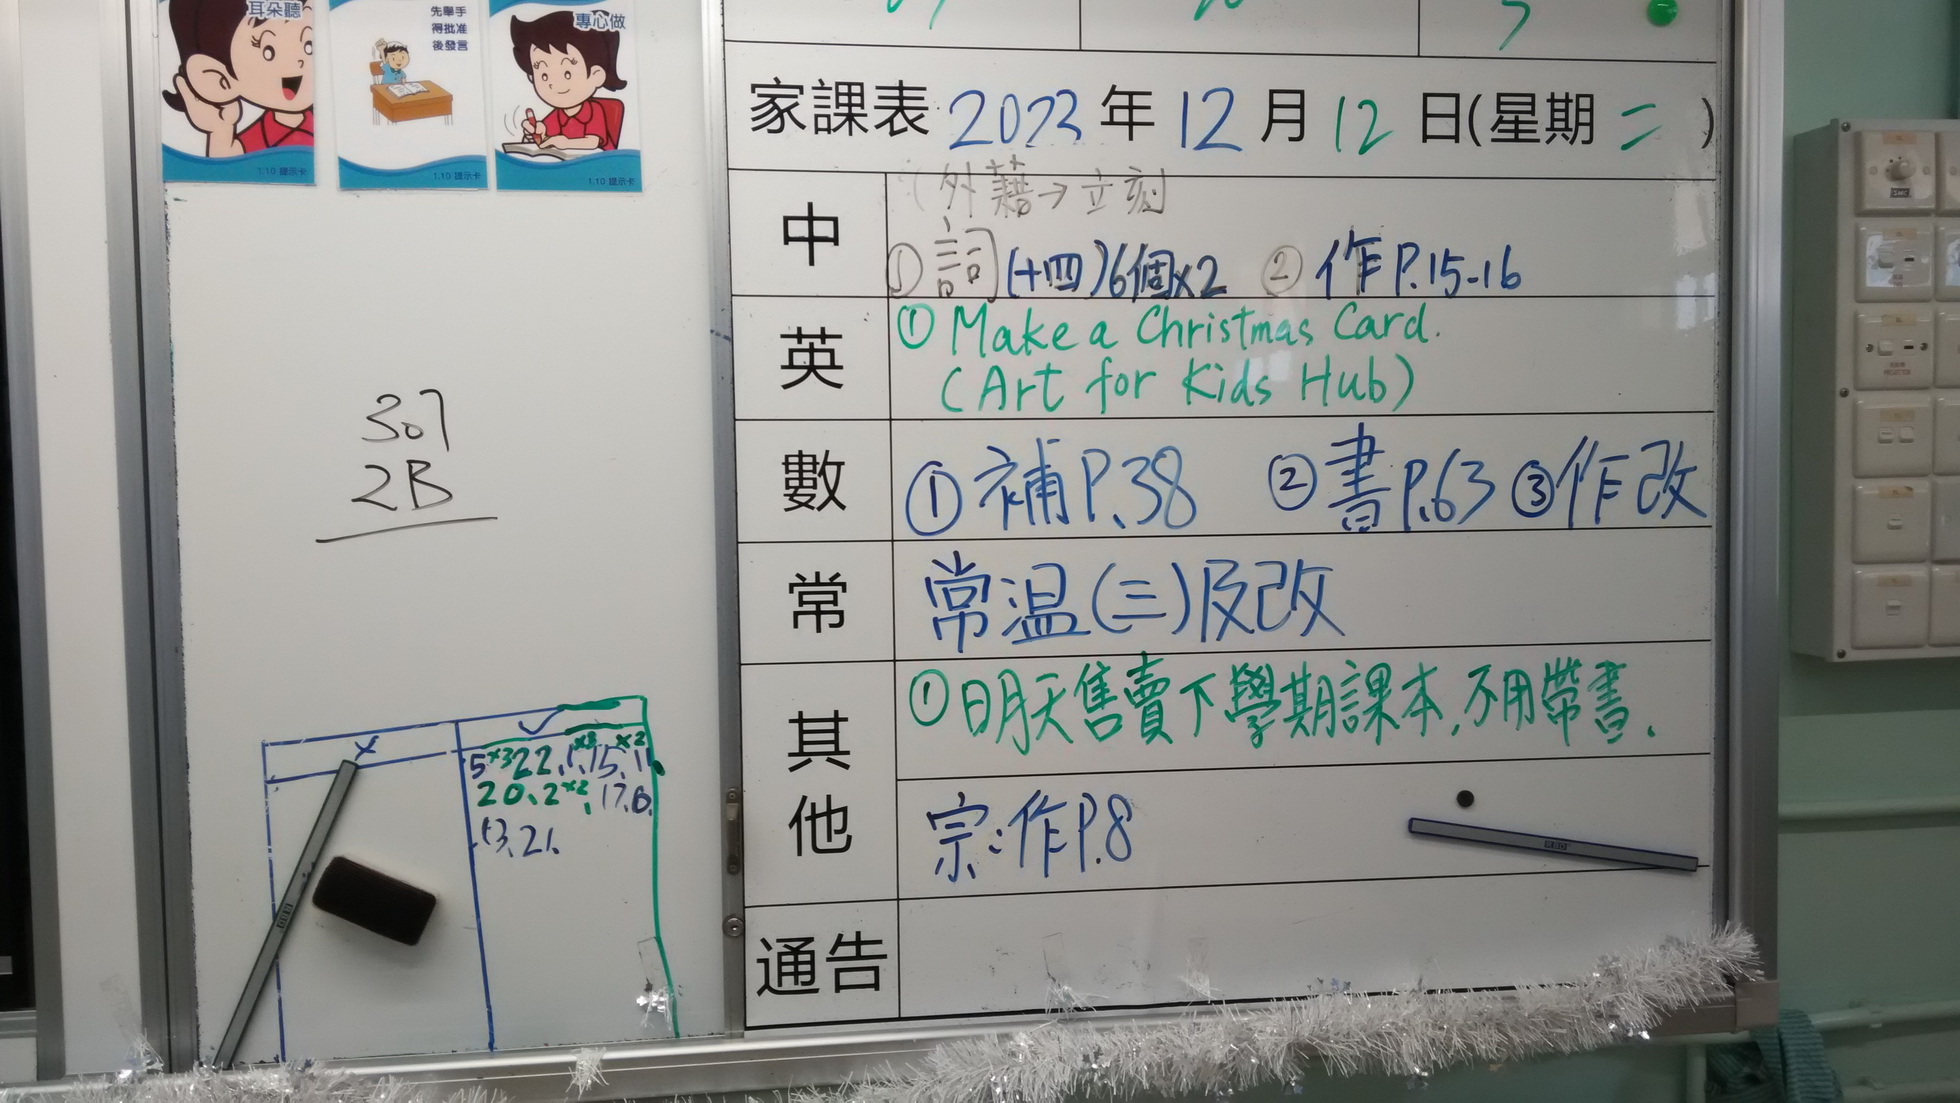 耳朵聽
先舉手
得批准
後發言
專心做
1.10 提示卡
1.10 提示卡
1.10 提示卡
307
2B
5×3 22、1×3、15、11×2
20、2×2、17、6、
13、21、
家課表 2023年 12月 12日(星期二)
中
(外籍→立刻)
① 詞(十四)6個×2 ② 作P.15-16
英
① Make a Christmas Card.
(Art for Kids Hub)
數
① 補P.38 ② 書P.63 ③ 作改
常
常温(三)及改
其他
① 明天售賣下學期課本,不用帶書.
宗:作P.8
通告